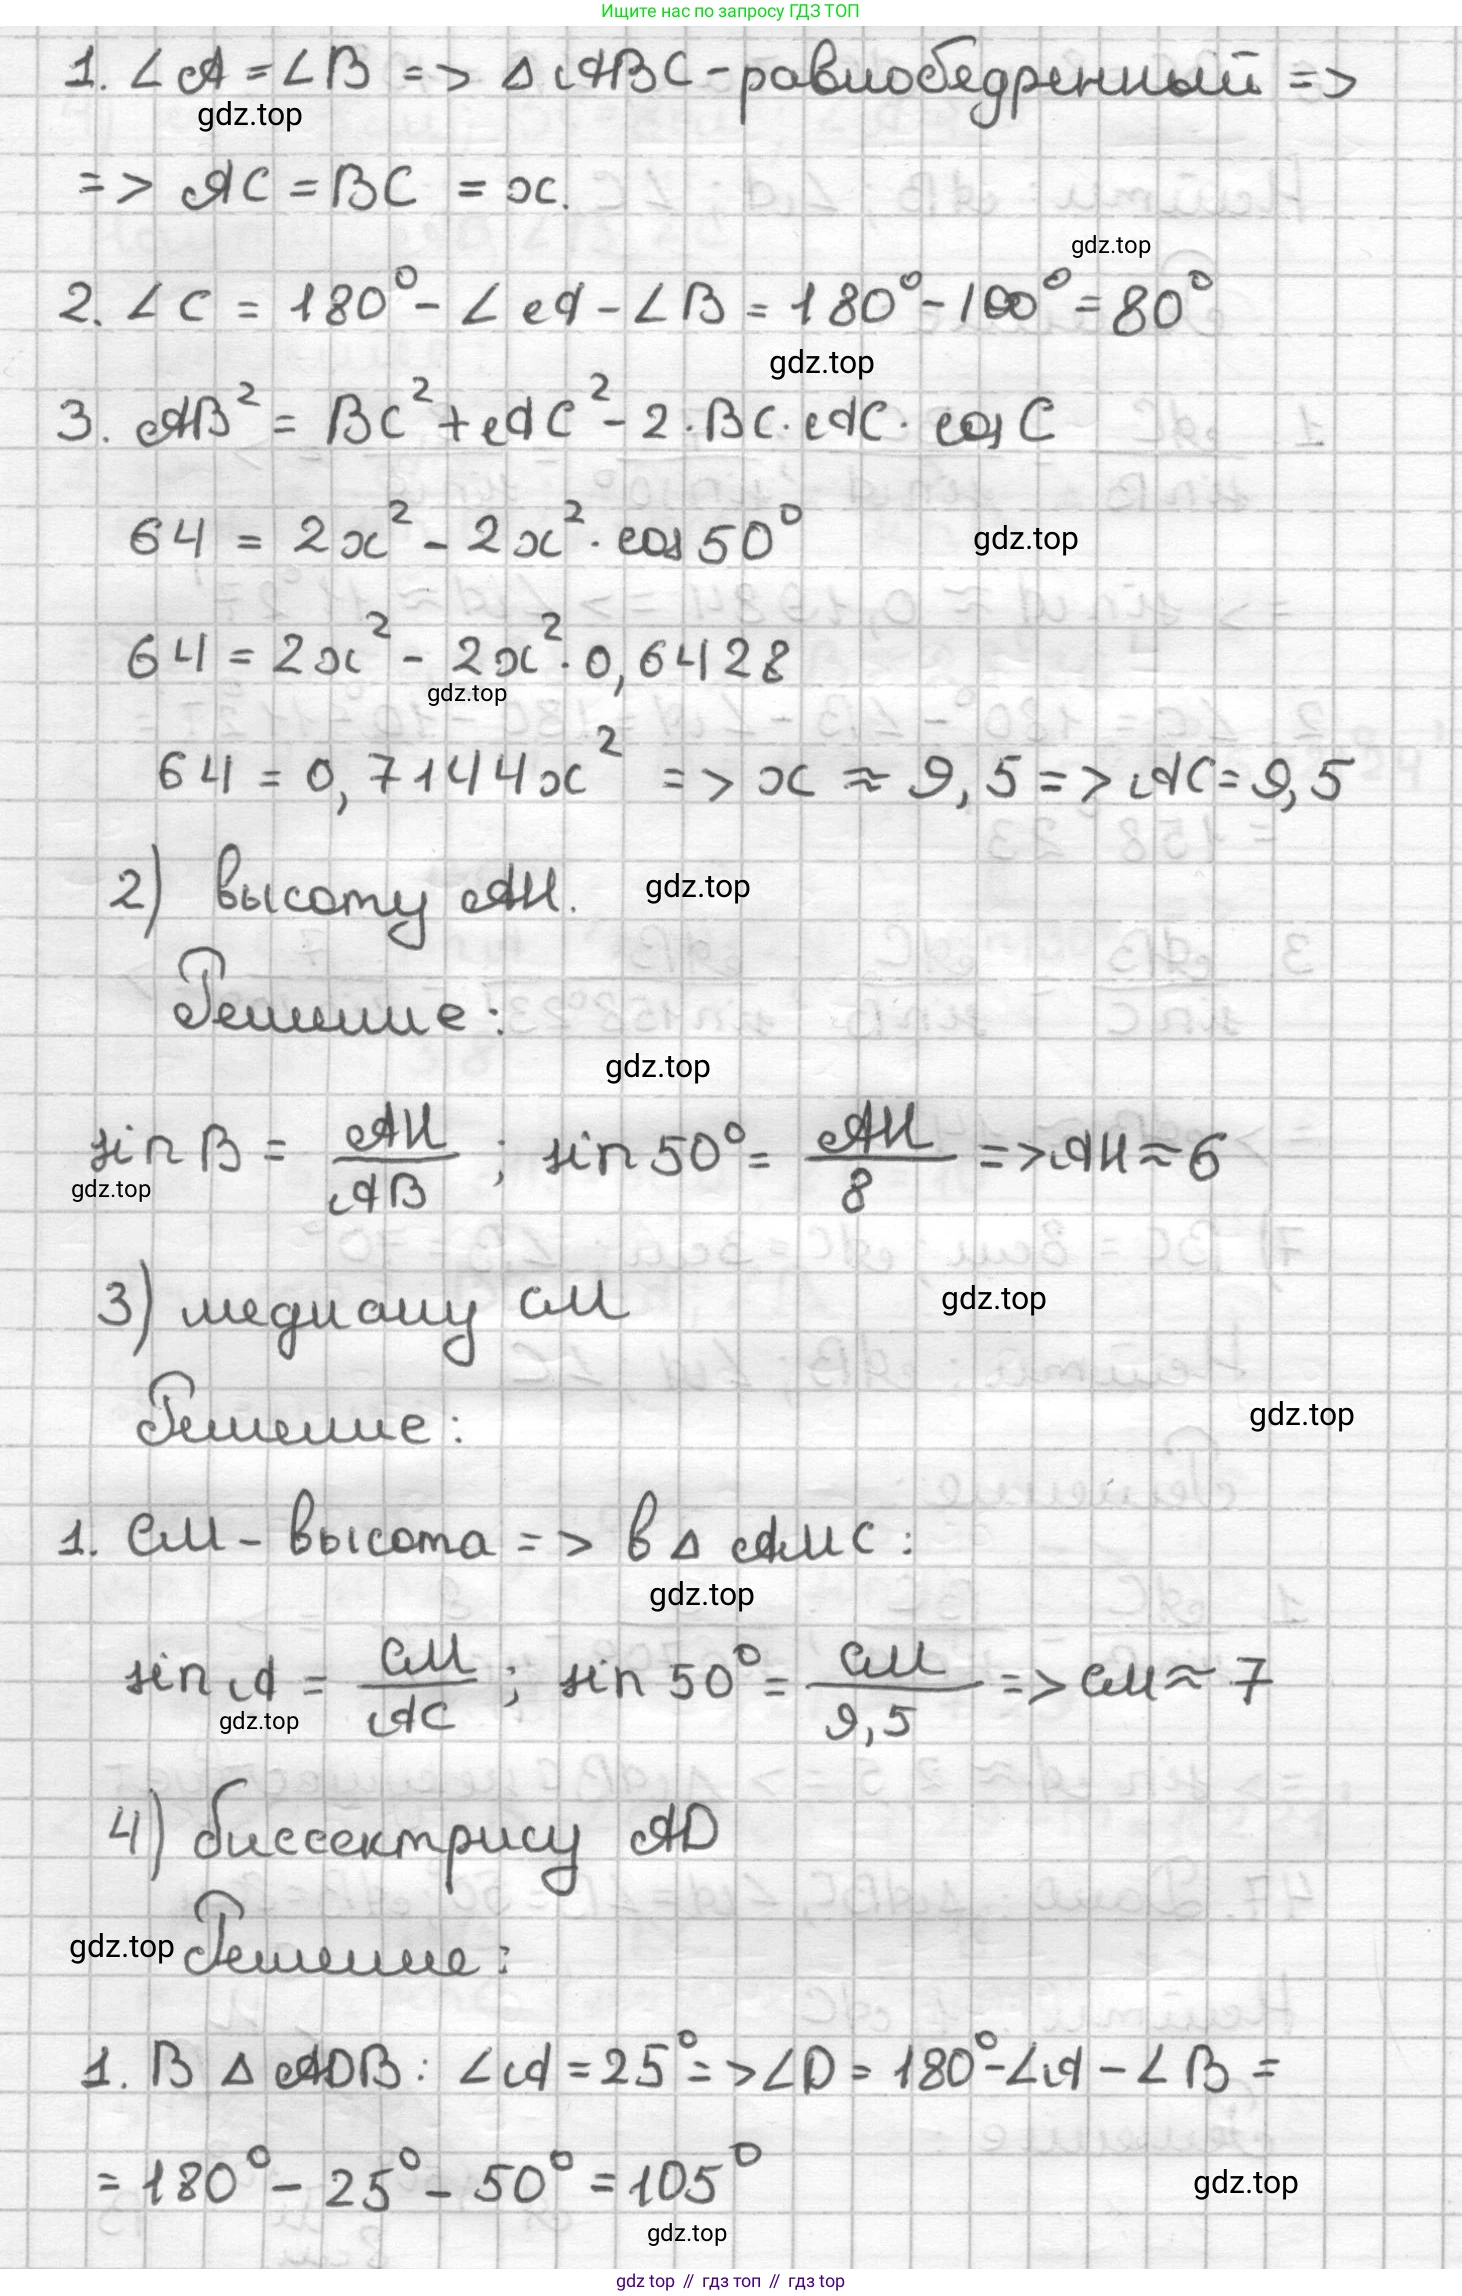 Ищите нас по запросу ГДЗ ТОП
1. ∠A = ∠B => △ABC - равнобедренный =>
gdz.top
=> AC = BC = x.
gdz.top
2. ∠C = 180° - ∠A - ∠B = 180° - 100° = 80°
gdz.top
3. AB² = BC² + AC² - 2 · BC · AC · cos C
64 = 2x² - 2x² · cos 50°
gdz.top
64 = 2x² - 2x² · 0,6428
gdz.top
64 = 0,7144x² => x ≈ 9,5 => AC = 9,5
2) высоту AH.
gdz.top
Решение:
gdz.top
sin B = AH/AB ; sin 50° = AH/8 => AH ≈ 6
gdz.top
3) медиану CM
gdz.top
Решение:
gdz.top
1. CM - высота => в △ AMC:
gdz.top
sin A = CM/AC ; sin 50° = CM/9,5 => CM ≈ 7
gdz.top
4) биссектрису AD
gdz.top Решение:
1. В △ ADB: ∠A = 25° => ∠D = 180° - ∠A - ∠B =
= 180° - 25° - 50° = 105°
gdz.top
gdz.top
gdz top // гдз топ // гдз top